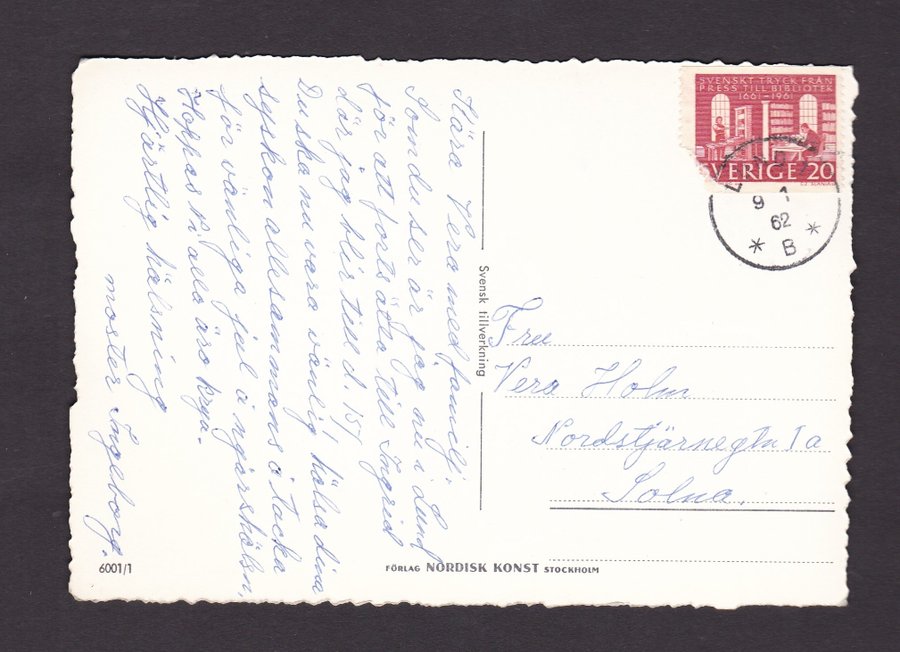 Kära Vera med familj.
Som du ser är jag nu i Lund
för att fortsätta till Ingrid
där jag blir till d. 15/1
Du ska nu vara vänlig hälsa dina
syskon allesammans o tacka
för vänliga jul o nyårshälsn,
Hoppas Ni alla äro krya.
Hjärtlig hälsning
moster Ingeborg.
6001/1
Svensk tillverkning
FÖRLAG NORDISK KONST STOCKHOLM
SVENSKT TRYCK FRÅN
PRESS TILL BIBLIOTEK
1661-1961
SVERIGE 20
9 1
62
* B *
Fru
Vera Holm
Nordstjärnegtn 1 a
Solna.